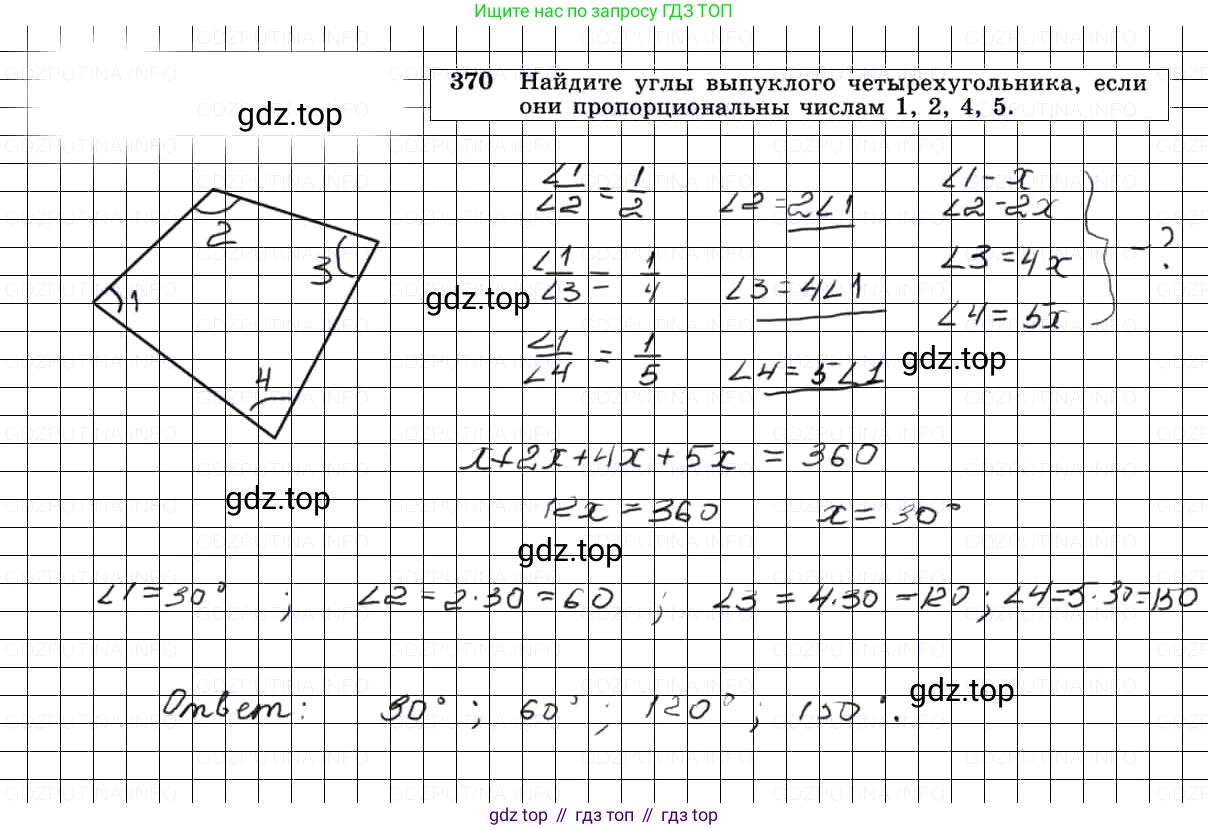 Ищите нас по запросу ГДЗ ТОП
370 Найдите углы выпуклого четырехугольника, если
они пропорциональны числам 1, 2, 4, 5.
gdz.top
∠1/∠2 = 1/2 ∠2 = 2∠1 ∠1 - x
∠2 - 2x
2
3
∠1/∠3 = 1/4 ∠3 = 4∠1 ∠3 = 4x - ?
1
gdz.top
∠4 = 5x
∠1/∠4 = 1/5 ∠4 = 5∠1 gdz.top
4
x+2x+4x+5x = 360
gdz.top
12x = 360 x = 30°
gdz.top
∠1 = 30° ; ∠2 = 2·30 = 60 ; ∠3 = 4·30 = 120 ; ∠4=5·30=150
gdz.top
Ответ: 30° ; 60° ; 120° ; 150°.
gdz top // гдз топ // gdz top